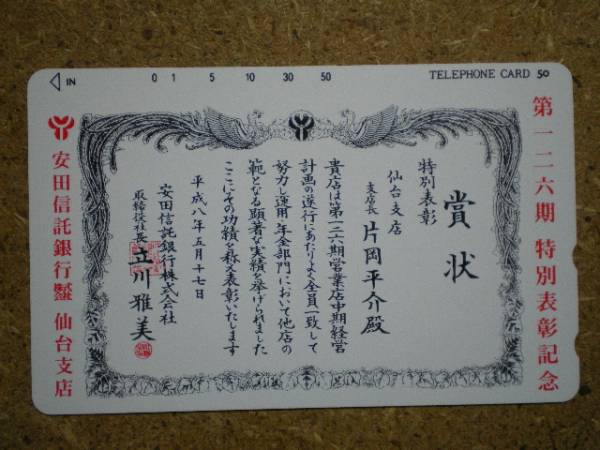 IN 0 1 5 10 30 50 TELEPHONE CARD 50
第一二六期 特別表彰記念
賞状
特別表彰
仙台支店
支店長 片岡平介殿
貴店は第一二六期営業店中期経営
計画の遂行にあたりよく全員一致して
努力し運用・年金部門において他店の
範となる顕著な実績を挙げられました
ここにその功績を称え表彰いたします
平成八年五月十七日
安田信託銀行株式会社
取締役社長 立川雅美
安田信託銀行 仙台支店